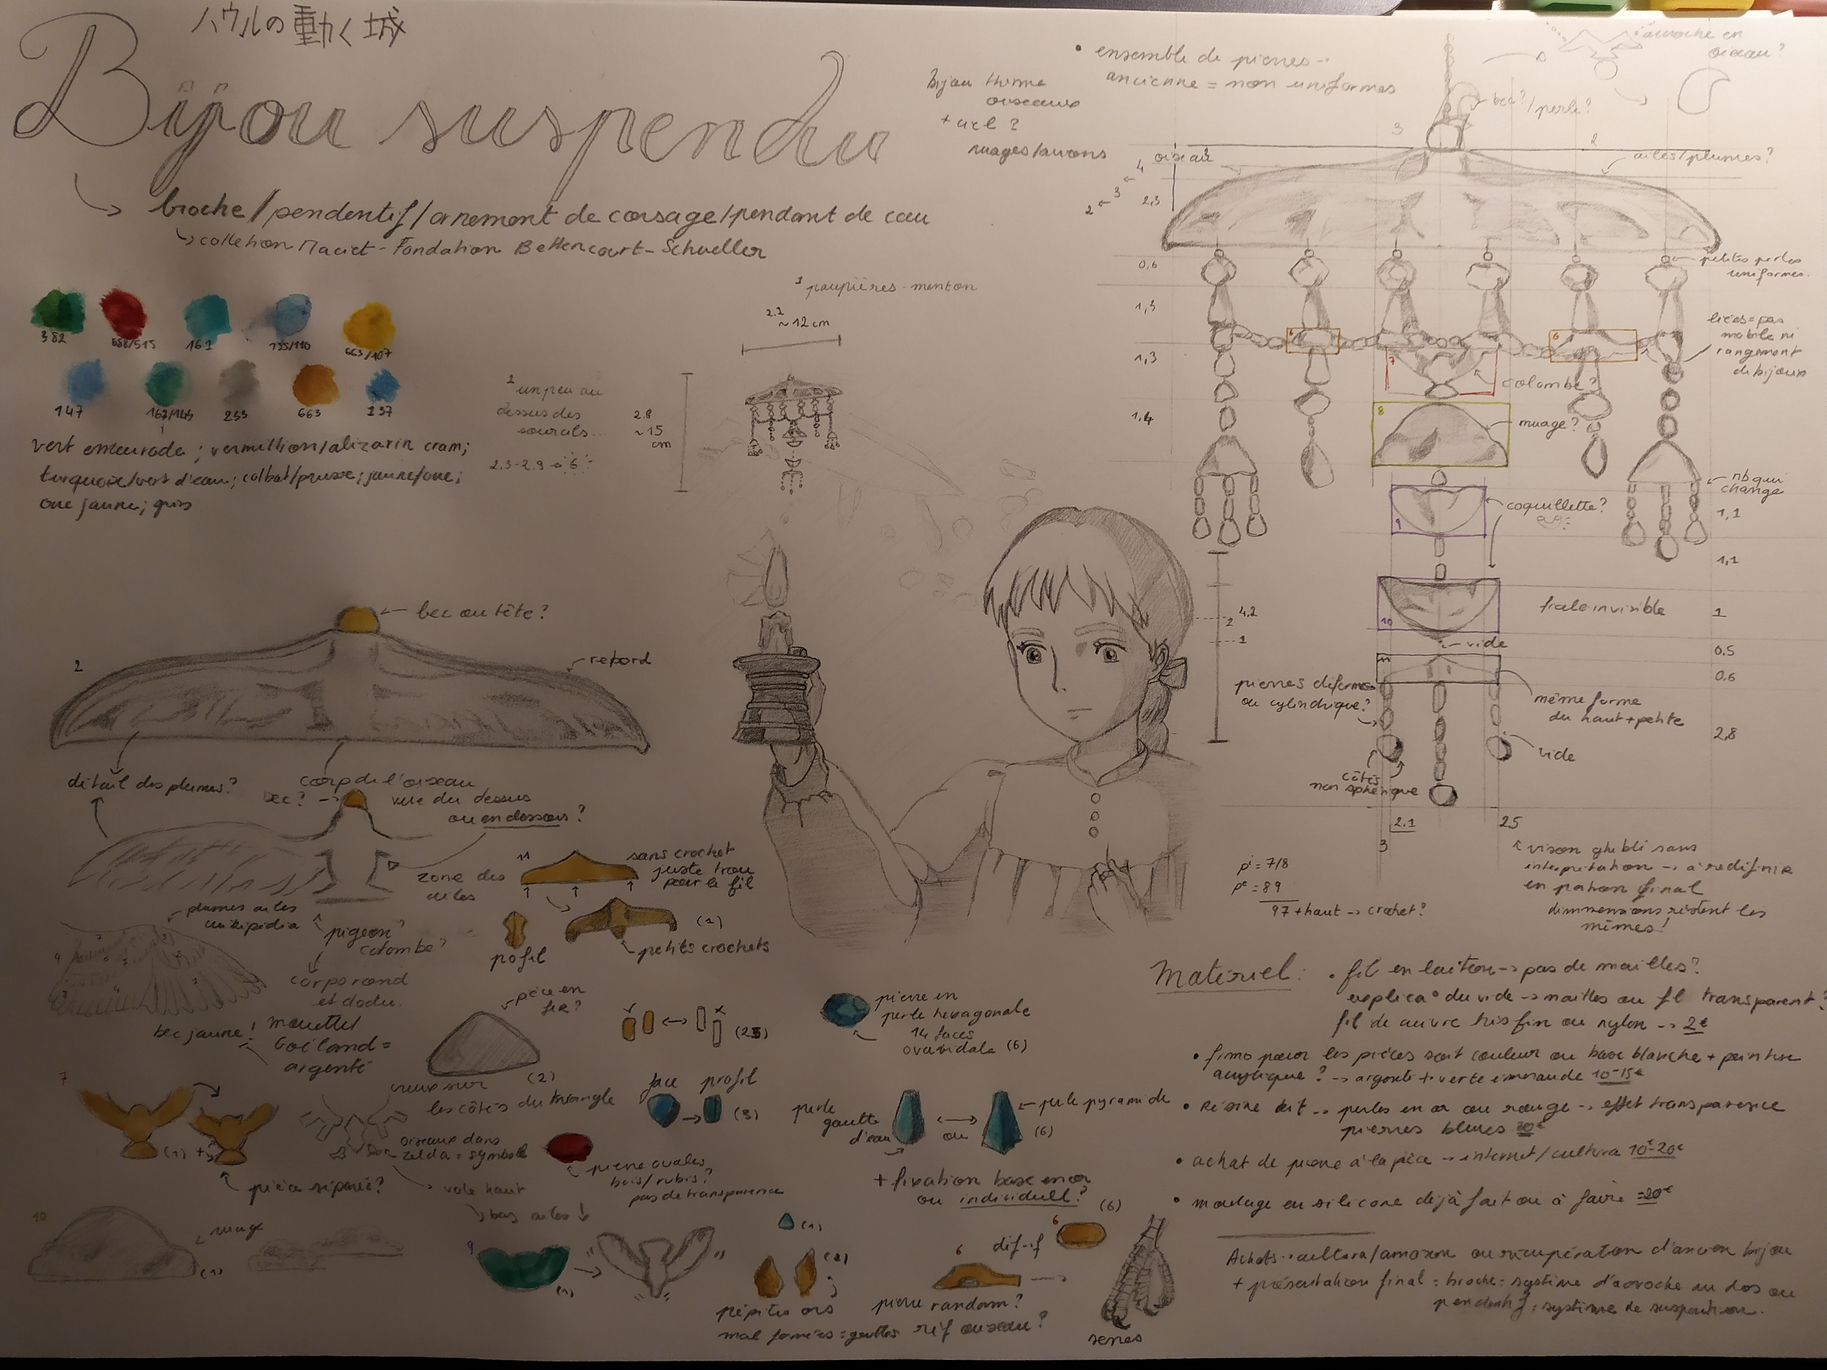 ハウルの動く城
Bijou suspendu
broche/pendentif/ornement de corsage/pendant de cou
collection Maciet - Fondation Bettencourt-Schueller
382
161
135/110
663/107
147
162/145
233
663
237
vert emeuraude ; vermillion/alizarin cram;
turquoise/vert d'eau; colbat/prusse; jaune/ocre;
ocre jaune; gris
paupières-menton
2.2
~12cm
un peu au
dessus des
sourcils...
2.8
~15
cm
• ensemble de pierres
ancienne = non uniformes
Bijou thème
oiseaux
+ ciel ?
nuages/avions
accroche en
oiseau?
bec?/perle?
oiseau
ailes/plumes?
2,3
0,6
1,3
1,3
1,4
petites perles
uniformes
liées=pas
mobile ni
rangement
de bijoux
colombe?
nuage?
nb qui
change
coquillette?
1,1
1,1
ficelle invisible
1
vide
0,5
0,6
pierres difformes
ou cylindrique?
même forme
du haut+petite
2,8
vide
côtés
non sphérique
2.1
25
3
4,2
2
1
p1 = 7/8
p2 = 89
97 + haut → crochet?
vison ghibli sans
interprétation → à redéfinir
en patron final
dimmensions restent les
mêmes!
bec ou tête?
2
rebord
détail des plumes?
corp de l'oiseau
bec?
vue du dessus
ou en dessous?
zone des
ailes
plumes ailes
wikipidia
pigeon?
colombe?
corps rond
et dodu
bec jaune!
mouette!
Goéland =
argenté
11
sans crochet
juste trou
pour le fil
(1)
profil
petits crochets
pièce en
fer?
(2)
creux sur
les côtés du triangle
pierre en
perle hexagonale
14 faces
ovoïdale (6)
7
(1)
oiseaux dans
zelda = symbole
pièce séparée?
vole haut
bas ailes ↓
face profil
(3)
perle
goutte
d'eau
ou
perle pyramide
(6)
pierre ovales
bois/rubis?
pas de transparence
+ fixation base en or
ou individuell?
10
nuage
(1)
9
(1)
(1)
(2)
pépites ors
mal formées = gouttes
6
pierre random?
réf oiseau?
6
(6)
serres
Matériel:
• fil en laiton → pas de mailles?
explica° du vide → mailles ou fil transparent?
fil de cuivre très fin ou nylon → 2€
• fimo pour les pièces soit couleur ou base blanche + peinture
acrylique? → argenté + verte émeraude 10-15€
• résine kit → perles en or ou rouge → effet transparence
pierres bleues 20€
• achat de pierre à la pièce → internet/cultura 10-20€
• moulage en silicone déjà fait ou à faire =20€
Achats → cultura/amazon ou récupération d'ancien bijou
+ présentation final = broche = système d'accroche au dos ou
pendentif = système de suspention.